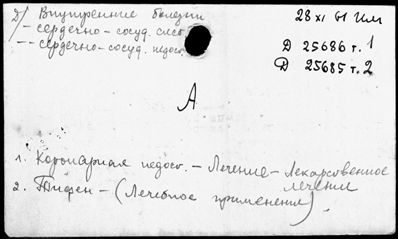 2/ Внутренние болезни
— сердечно-сосуд. сист.
— сердечно-сосуд. недос.
28 XI 61
Д 25686 т. 1
Д 25685 т. 2
А
1. Коронарная недост. — Лечение — Лекарственное
лечение
2. Тифен — (Лечебное применение)